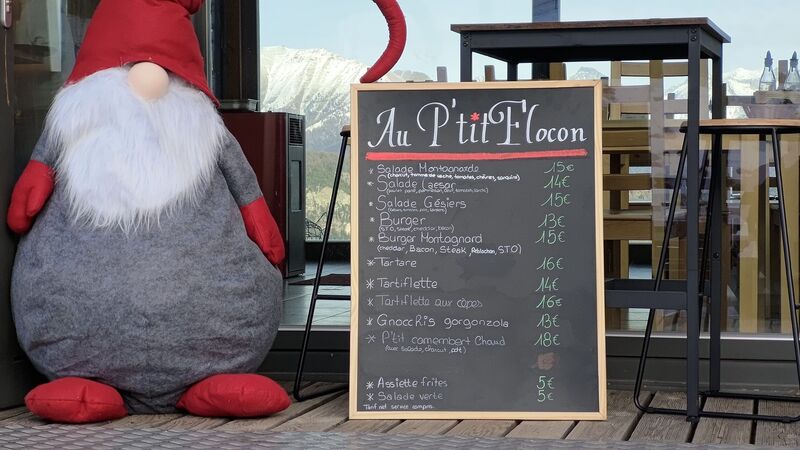 Au P'tit Flocon
* Salade Montagnarde 15€
(charcut, tomme de vache, tomates,
* Salade Caesar 14€
* Salade Gésiers 15€
* Burger 13€
(STO, steak, cheddar, bacon)
* Burger Montagnard 15€
(cheddar, Bacon, Steak, Reblochon, STO)
* Tartare 16€
* Tartiflette 14€
* Tartiflette aux cèpes 16€
* Gnocchis gorgonzola 13€
* P'tit camembert Chaud 18€
(avec salade, charcut, pdt)
* Assiette frites 5€
* Salade verte 5€
Tarif net service compris